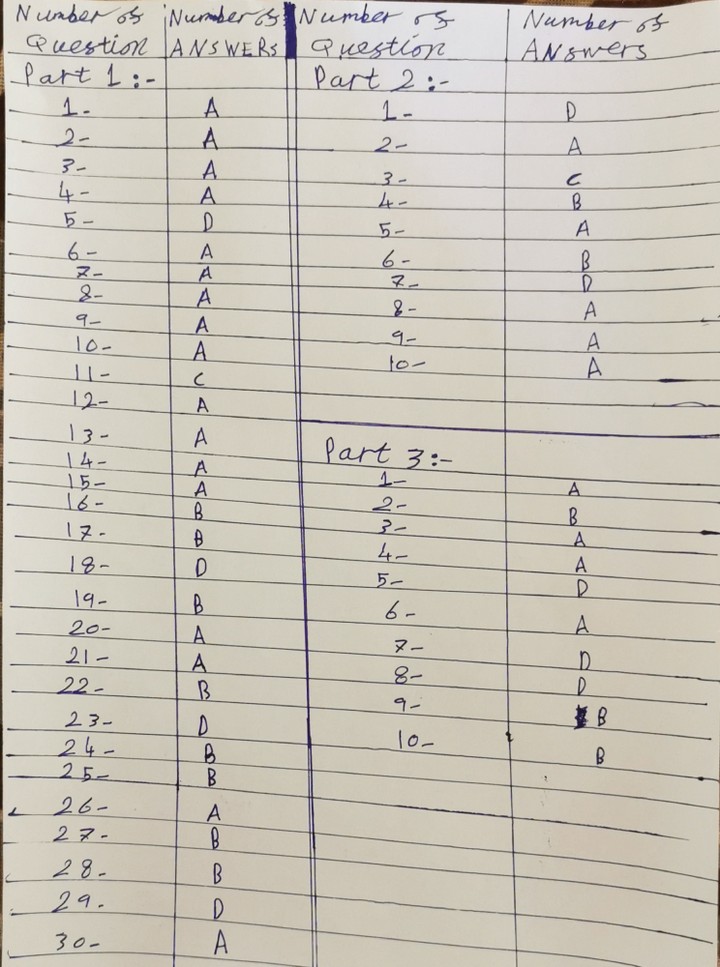 Number of Number of Number of Number of
Question ANSWERS Question ANSWERS
Part 1:-
1- A
2- A
3- A
4- A
5- D
6- A
7- A
8- A
9- A
10- A
11- C
12- A
13- A
14- A
15- A
16- B
17- B
18- D
19- B
20- A
21- A
22- B
23- D
24- B
25- B
26- A
27- B
28- B
29- D
30- A
Part 2:-
1- D
2- A
3- C
4- B
5- A
6- B
7- D
8- A
9- A
10- A
Part 3:-
1- A
2- B
3- A
4- A
5- D
6- A
7- D
8- D
9- B
10- B